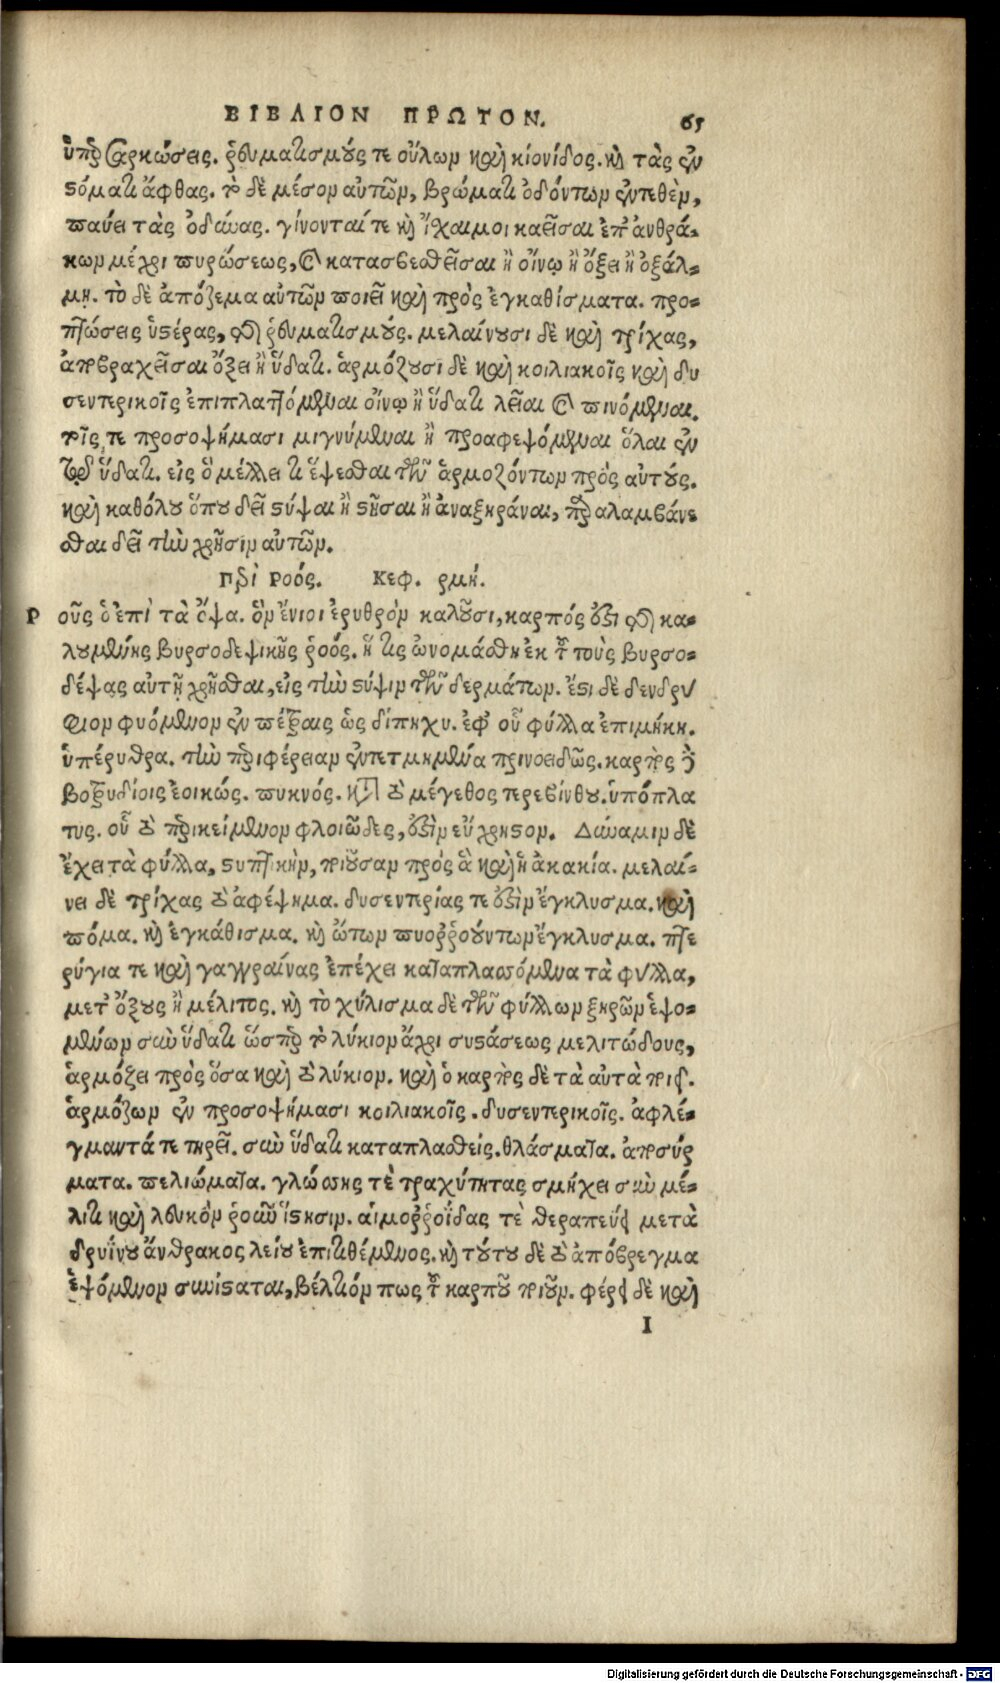 ΒΙΒΛΙΟΝ ΠΡΩΤΟΝ. 65
ὑπερσαρκώσεις. ῥευματισμούς τε οὔλων καὶ κιονίδος. καὶ τὰς ἐν
στόματι ἄφθας. τὸ δὲ μέσον αὐτῶν, βρώματι ὀδόντων ἐντεθὲν,
παύει τὰς ὀδύνας. γίνονταί τε καὶ ἴχαιμοι καεῖσαι ἐπ' ἀνθρά-
κων μέχρι πυρώσεως, καὶ κατασβεσθεῖσαι ἢ οἴνῳ ἢ ὄξει ἢ ὀξάλ-
μῃ. τὸ δὲ ἀπόζεμα αὐτῶν ποιεῖ καὶ πρὸς ἐγκαθίσματα. προ-
πτώσεις ὑστέρας, καὶ ῥευματισμούς. μελαίνουσι δὲ καὶ τρίχας,
ἀποβραχεῖσαι ὄξει ἢ ὕδατι. ἁρμόζουσι δὲ καὶ κοιλιακοῖς καὶ δυ
σεντερικοῖς ἐπιπλαττόμεναι οἴνῳ ἢ ὕδατι λεῖαι καὶ πινόμεναι.
τοῖς τε προσοψήμασι μιγνύμεναι ἢ προαφεψόμεναι ὅλαι ἐν
τῷ ὕδατι. εἰς ὃ μέλλει τι ἕψεσθαι τῶν ἁρμοζόντων πρὸς αὐτούς.
καὶ καθόλου ὅπου δεῖ στύψαι ἢ στῆσαι ἢ ἀναξηράναι, παραλαμβάνε
σθαι δεῖ τὴν χρῆσιν αὐτῶν.
Περὶ Ροός. Κεφ. ρμή.
Ροῦς ὁ ἐπὶ τὰ ὄψα. ὃν ἔνιοι ἐρυθρὸν καλοῦσι, καρπός ἐστι τῆς κα-
λουμένης βυρσοδεψικῆς ῥοός. ἥ τις ὠνομάσθη ἐκ τοῦ τοὺς βυρσο-
δέψας αὐτῇ χρῆσθαι, εἰς τὴν στύψιν τῶν δερμάτων. ἔστι δὲ δενδρύ
φιον φυόμενον ἐν πέτραις ὡς δίπηχυ. ἐφ' οὗ φύλλα ἐπιμήκη.
ὑπέρυθρα. τὴν περιφέρειαν ἐντετμημένα πρινοειδῶς. καρπὸς δὲ
βοτρυδίοις ἐοικώς. πυκνός. κατὰ τὸ μέγεθος τερεβίνθου. ὑπόπλα
τυς. οὗ τὸ περικείμενον φλοιῶδες, ἐστὶν εὔχρηστον. Δύναμιν δὲ
ἔχει τὰ φύλλα, στυπτικὴν, ποιοῦσαν πρὸς ἃ καὶ ἡ ἀκακία. μελαί-
νει δὲ τρίχας τὸ ἀφέψημα. δυσεντερίας τε ἐστὶν ἔγκλυσμα. καὶ
πόμα. καὶ ἐγκάθισμα. καὶ ὤτων πυοῤῥούντων ἔγκλυσμα. πτε
ρύγιά τε καὶ γαγγραίνας ἐπέχει καταπλασσόμενα τὰ φύλλα,
μετ' ὄξους ἢ μέλιτος. καὶ τὸ χύλισμα δὲ τῶν φύλλων ξηρῶν ἑψο-
μένων σὺν ὕδατι ὥσπερ τὸ λύκιον ἄχρι συστάσεως μελιτώδους,
ἁρμόζει πρὸς ὅσα καὶ τὸ λύκιον. καὶ ὁ καρπὸς δὲ τὰ αὐτὰ ποιεῖ.
ἁρμόζων ἐν προσοψήμασι κοιλιακοῖς. δυσεντερικοῖς. ἀφλέ-
γμαντά τε τηρεῖ. σὺν ὕδατι καταπλασθείς. θλάσματα. ἀποσύρ
ματα. πελιώματα. γλώσσης τὲ τραχύτητας σμήχει σὺν μέ-
λιτι καὶ λευκὸν ῥοῦν ἵστησιν. αἱμοῤῥοΐδας τὲ θεραπεύει μετὰ
δρυΐνου ἄνθρακος λείου ἐπιτιθέμενος. καὶ τούτου δὲ τὸ ἀπόβρεγμα
ἑψόμενον συνίσταται, βέλτιόν πως τοῦ καρποῦ ποιοῦν. φέρει δὲ καὶ
I
Digitalisierung gefördert durch die Deutsche Forschungsgemeinschaft - DFG